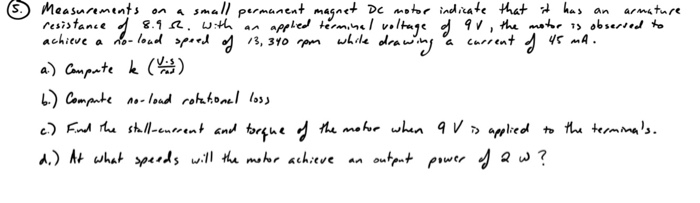 5. Measurements on a small permanent magnet DC motor indicate that it has an armature
resistance of 8.9 Ω. With an applied terminal voltage of 9V, the motor is observed to
achieve a no-load speed of 13,340 rpm while drawing a current of 45 mA.
a.) Compute k (V·s/rad)
b.) Compute no-load rotational loss
c.) Find the stall-current and torque of the motor when 9 V is applied to the terminals.
d.) At what speeds will the motor achieve an output power of 2 W?